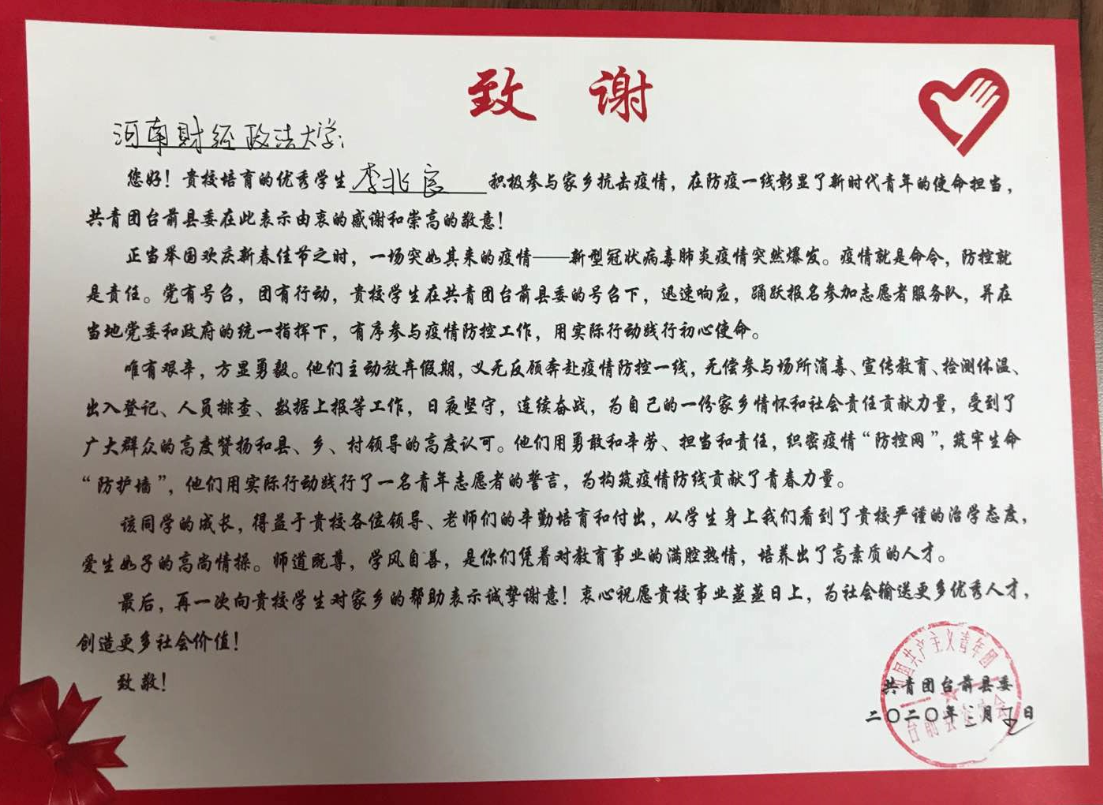 致谢
河南财经政法大学:
您好！贵校培育的优秀学生李兆良积极参与家乡抗击疫情，在防疫一线彰显了新时代青年的使命担当，
共青团台前县委在此表示由衷的感谢和崇高的敬意！
正当举国欢庆新春佳节之时，一场突如其来的疫情——新型冠状病毒肺炎疫情突然爆发。疫情就是命令，防控就
是责任。党有号召，团有行动，贵校学生在共青团台前县委的号召下，迅速响应，踊跃报名参加志愿者服务队，并在
当地党委和政府的统一指挥下，有序参与疫情防控工作，用实际行动践行初心使命。
唯有艰辛，方显勇毅。他们主动放弃假期，义无反顾奔赴疫情防控一线，无偿参与场所消毒、宣传教育、检测体温、
出入登记、人员排查、数据上报等工作，日夜坚守，连续奋战，为自己的一份家乡情怀和社会责任贡献力量，受到了
广大群众的高度赞扬和县、乡、村领导的高度认可。他们用勇敢和辛劳、担当和责任，织密疫情“防控网”，筑牢生命
“防护墙”，他们用实际行动践行了一名青年志愿者的誓言，为构筑疫情防线贡献了青春力量。
该同学的成长，得益于贵校各位领导、老师们的辛勤培育和付出，从学生身上我们看到了贵校严谨的治学态度，
爱生如子的高尚情操。师道既尊，学风自善，是你们凭着对教育事业的满腔热情，培养出了高素质的人才。
最后，再一次向贵校学生对家乡的帮助表示诚挚谢意！衷心祝愿贵校事业蒸蒸日上，为社会输送更多优秀人才，
创造更多社会价值！
致敬！
共青团台前县委
二〇二〇年三月五日